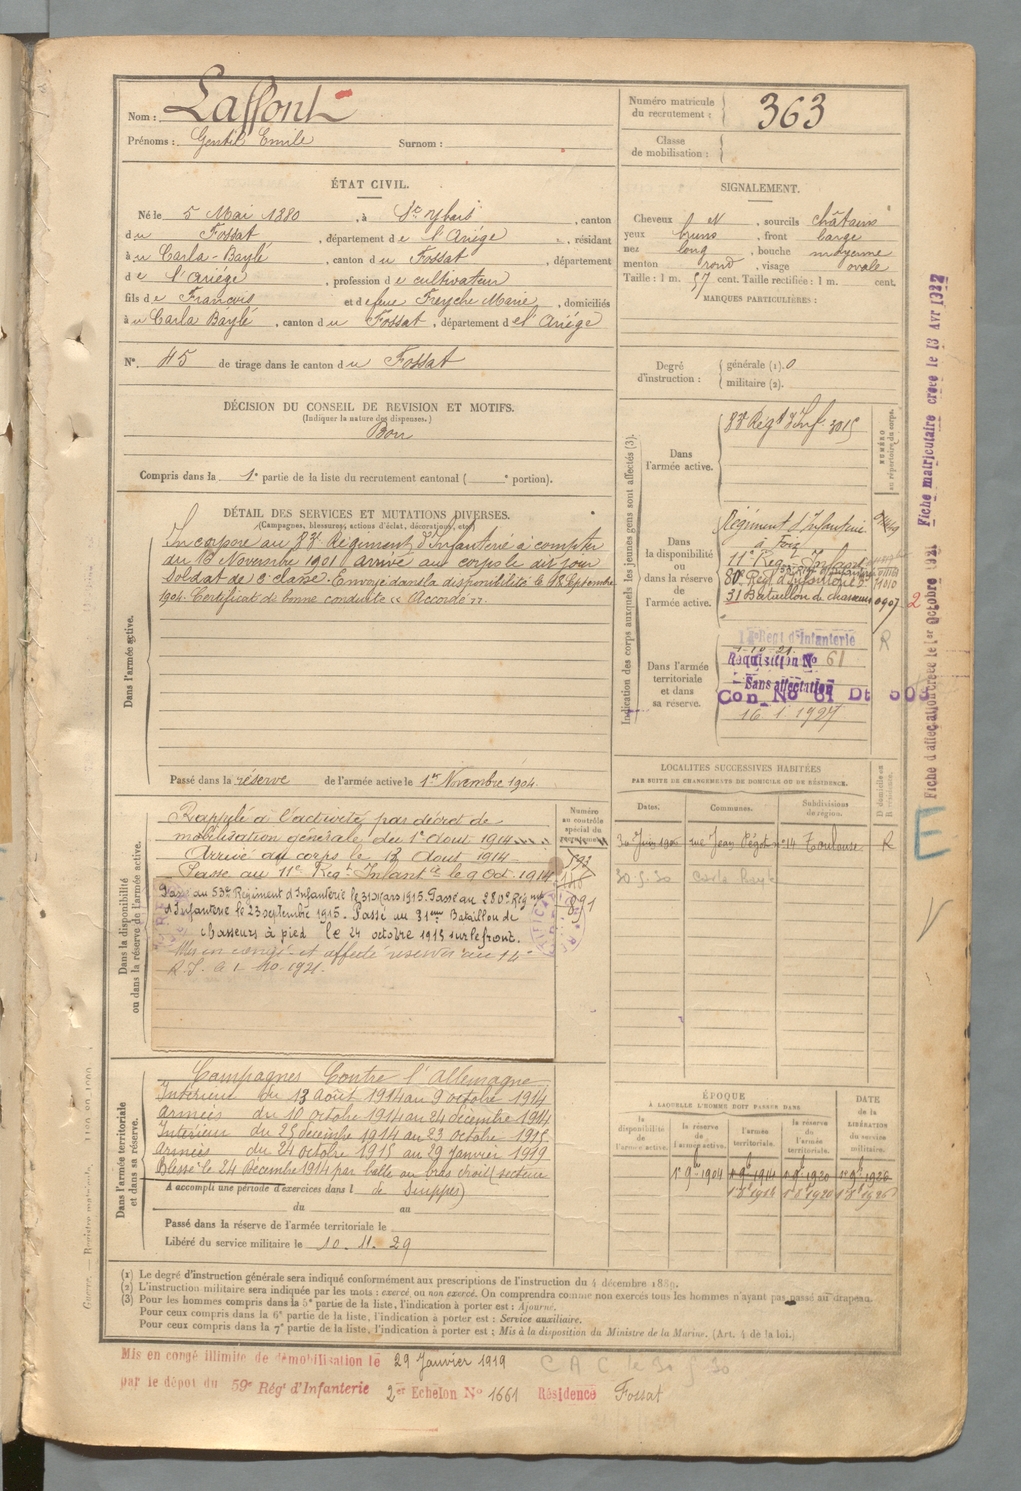 Nom : Laffont
Prénoms : Gentil Emile Surnom :
Numéro matricule du recrutement : 363
Classe de mobilisation :
ÉTAT CIVIL.
Né le 5 Mai 1880, à St Ybars, canton
du Fossat, département de l'Ariége, résidant
à u Carla-Baylé, canton du Fossat, département
de l'Ariége, profession de cultivateur
fils de Francois et de feue Freyche Marie, domiciliés
à u Carla Baylé, canton du Fossat, département de l'Ariége
N° 45 de tirage dans le canton du Fossat
SIGNALEMENT.
Cheveux ch N, sourcils châtains
yeux bruns, front large
nez long, bouche moyenne
menton rond, visage ovale
Taille : 1 m. 57 cent. Taille rectifiée : 1 m. cent.
MARQUES PARTICULIÈRES :
Degré d'instruction : générale (1). 0
militaire (2).
DÉCISION DU CONSEIL DE REVISION ET MOTIFS.
(Indiquer la nature des dispenses.)
Bon
Compris dans la 1e partie de la liste du recrutement cantonal ( e portion).
DÉTAIL DES SERVICES ET MUTATIONS DIVERSES.
(Campagnes, blessures, actions d'éclat, décorations, etc.)
Dans l'armée active.
Incorporé au 83e Régiment d'Infanterie à compter
du 16 Novembre 1901 arrivé au corps le dit jour
Soldat de 2e classe. Envoyé dans la disponibilité le 18 Septembre
1904. Certificat de bonne conduite « Accordé ».
Passé dans la réserve de l'armée active le 1er Novembre 1904.
Indication des corps auxquels les jeunes gens sont affectés (3).
NUMÉRO au répertoire du corps.
Dans l'armée active.
83e Régt d'Inf. 3015
Dans la disponibilité ou dans la réserve de l'armée active.
Régiment d'Infanterie
à Foix
11e Reg Infant
80e Régt d'Infanterie
31 Bataillon de chasseurs 0907 2
Dans l'armée territoriale et dans sa réserve.
Régt d'Infanterie R
1-10-21
Réquisition No 61
Sans affectation
Con No 61 Dt 503
16 1 1927
Fiche d'affectation créée le 1er Octobre 1921 Fiche matriculaire créée le 13 AVR 1922
LOCALITÉS SUCCESSIVES HABITÉES
PAR SUITE DE CHANGEMENTS DE DOMICILE OU DE RÉSIDENCE.
D domicile ou R résidence.
Dates. Communes. Subdivisions de région.
rue Jean Pégot n° 14 Toulouse R
20-5-30 Carla Bayle
E
Dans la disponibilité ou dans la réserve de l'armée active.
Numéro au contrôle spécial du recrutement
Rappelé à l'activité par décret de
mobilisation générale du 1er Aout 1914
Arrivé au corps le 13 Aout 1914
Passé au 11e Régt Infantie le 9 Oct 1914
Passé au 53e Régiment d'Infanterie le 31 Mars 1915. Passé au 280e Régiment
d'Infanterie le 23 septembre 1915. Passé au 31eme Bataillon de
chasseurs à pied le 24 octobre 1915 sur le front.
R.I. le 1-10-1921.
Dans l'armée territoriale et dans sa réserve.
Campagnes Contre l'Allemagne
Intérieur du 13 Août 1914 au 9 octobre 1914
Armées du 10 octobre 1914 au 24 décembre 1914
Intérieur du 25 décembre 1914 au 23 octobre 1915
Armées du 24 octobre 1915 au 29 Janvier 1919
Blessé le 24 Décembre 1914 par balle au bras droit (secteur
A accompli une période d'exercices dans l de Suippes)
du au
Passé dans la réserve de l'armée territoriale le
Libéré du service militaire le 10. 11. 29
ÉPOQUE
A LAQUELLE L'HOMME DOIT PASSER DANS
DATE de la LIBÉRATION du service militaire.
la disponibilité de l'armée active. la réserve de l'armée active. l'armée territoriale. la réserve de l'armée territoriale.
1er 9bre 1904 1er 9bre 1914 1er 9bre 1920 1er 9bre 1926
(1) Le degré d'instruction générale sera indiqué conformément aux prescriptions de l'instruction du 4 décembre 1889.
(2) L'instruction militaire sera indiquée par les mots : exercé ou non exercé. On comprendra comme non exercés tous les hommes n'ayant pas passé au drapeau.
(3) Pour les hommes compris dans la 5e partie de la liste, l'indication à porter est : Ajourné.
Pour ceux compris dans la 6e partie de la liste, l'indication à porter est : Service auxiliaire.
Pour ceux compris dans la 7e partie de la liste, l'indication à porter est : Mis à la disposition du Ministre de la Marine. (Art. 4 de la loi.)
Mis en congé illimité de démobilisation le 29 Janvier 1919 C A C le 20 5 30
par le dépot du 59e Régt d'Infanterie 2er Echelon No 1661 Résidence Fossat